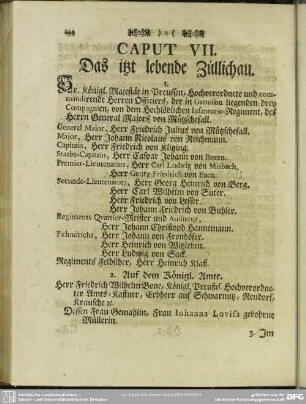 244
CAPUT VII.
Das itzt lebende Züllichau.
1.
Sr. Königl. Majestät in Preussen, Hochverordnete und com-
mandirende Herren Officiers, der in Garnison liegenden drey
Compagnien, von dem Hochlöblichen Infanterie-Regiment, des
Herrn General Majors von Mützschefall.
General Major, Herr Friedrich Julius von Mützschefall.
Major, Herr Johann Nicolaus von Reichmann.
Capitain, Herr Friedrich von Klitzing.
Staabs-Capitain, Herr Caspar Johann von Boxen.
Premier-Lieutenants, Herr Carl Ludwig von
Herr Georg Friedrich von
Seconde-Lieutenants, Herr Georg Heinrich von Berg.
Herr Carl Wilhelm von Suter.
Herr Friedrich von Lesser.
Herr Johann Friedrich von Buhler.
Regiments Quartier-Meister und Auditeur,
Herr Johann Christoph Hannemann.
Fähndrichs, Herr Johann von Fronhöfer.
Herr Heinrich von Witzleben.
Herr Ludwig von Sack.
Regiments Feldscher, Herr Heinrich Klaß.
2. Auf dem Königl. Amte.
Herr Friedrich Wilhelm Bone, Königl. Preußis. Hochverordne-
ter Amts-Kastner, Erbherr auf Schwarmitz, Nendorf,
Krausche ꝛc.
Dessen Frau Gemahlin, Frau Iohanna Lovisa gebohrne
Müllerin.
3. Im